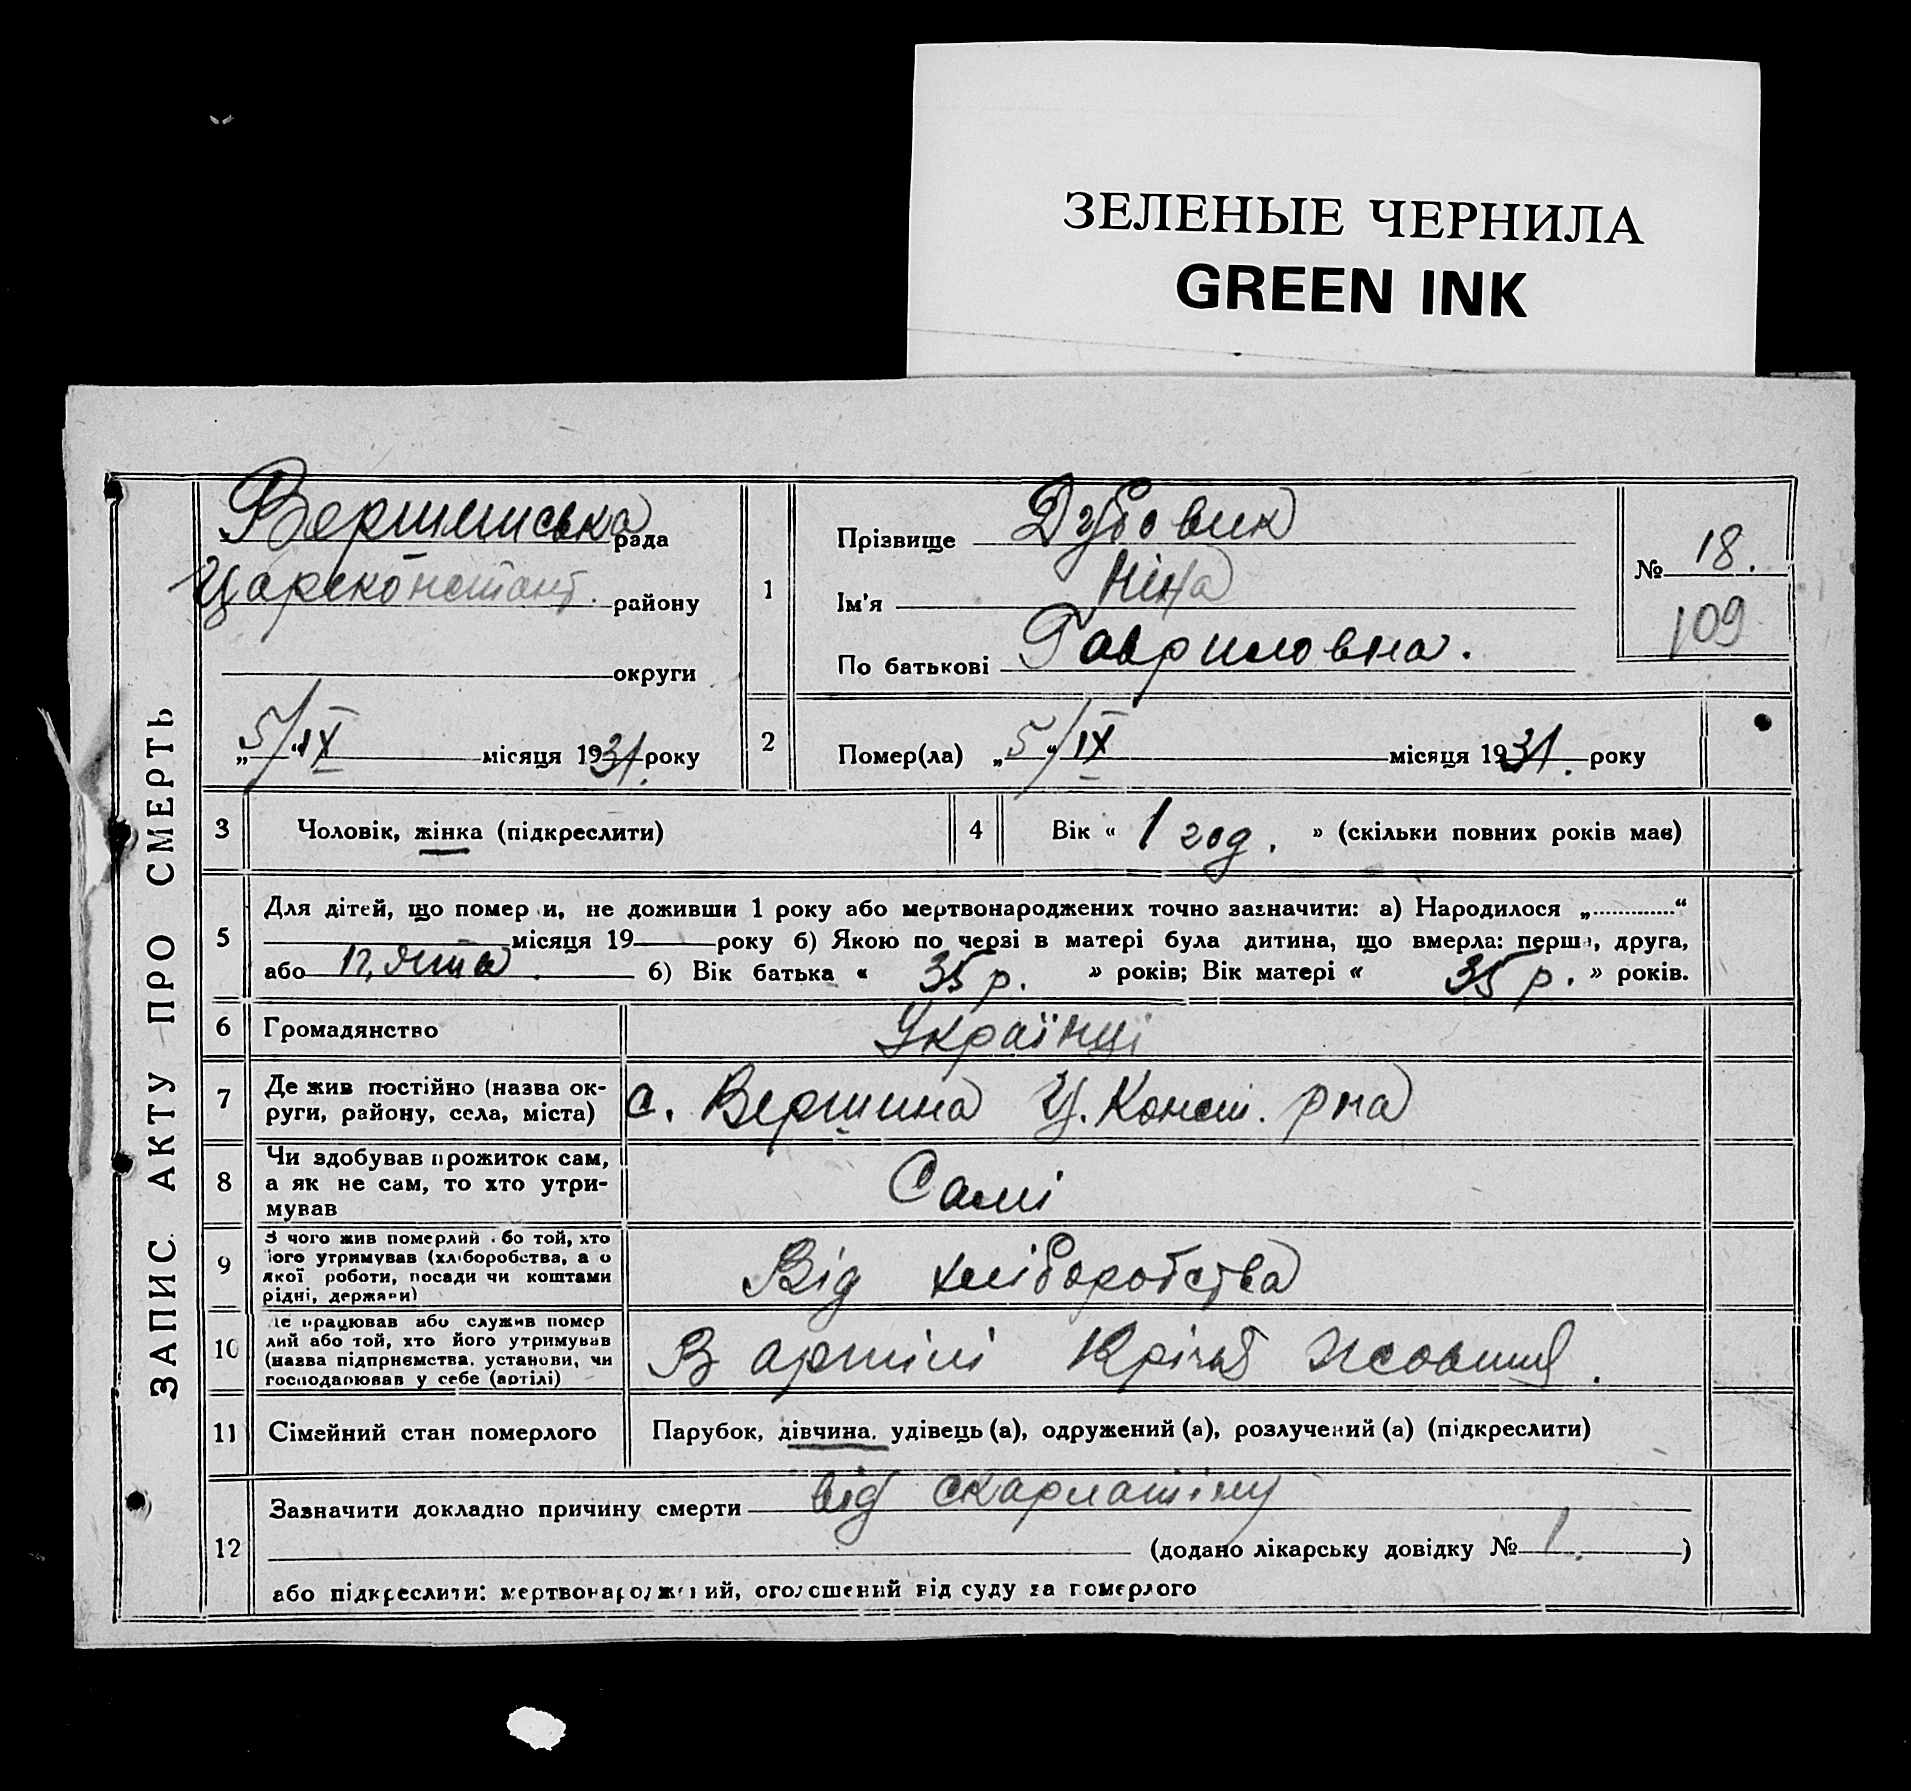 ЗЕЛЕНЫЕ ЧЕРНИЛА
GREEN INK
ЗАПИС АКТУ ПРО СМЕРТЬ
Вершинська рада
Царсконстант. району
округи
„5/“ IX місяця 1931. року
1
Прізвище Дубовик
Ім'я Ніна
По батькові Гавриловна.
№ 18.
109
2
Помер(ла) „5/“ IX місяця 1931. року
3 Чоловік, жінка (підкреслити)
4 Вік « 1 год. » (скільки повних років має)
5
Для дітей, що помер и, не доживши 1 року або мертвонароджених точно зазначити: а) Народилося „.............“
місяця 19 року б) Якою по черзі в матері була дитина, що вмерла: перша, друга,
або п,ята. 6) Вік батька « 35 р. » років; Вік матері « 35 р. » років.
6 Громадянство Українці
7 Де жив постійно (назва ок-
руги, району, села, міста) с. Вершина Ц. Конст. рна
8 Чи здобував прожиток сам,
а як не сам, то хто утри-
мував Самі
9 З чого жив померлий або той, хто
його утримував (хліборобства, а о
якої роботи, посади чи коштами
рідні, держави) Від хліборобства
10 Де працював або служив помер
лий або той, хто його утримував
(назва підприємства, установи, чи
господарював у себе (артілі) В артілі Жовтня.
11 Сімейний стан померлого Парубок, дівчина, удівець (а), одружений (а), розлучений (а) (підкреслити)
12
Зазначити докладно причину смерти від скарлатіну
(додано лікарську довідку № 1. )
або підкреслити: мертвонароджений, оголошений від суду за померлого